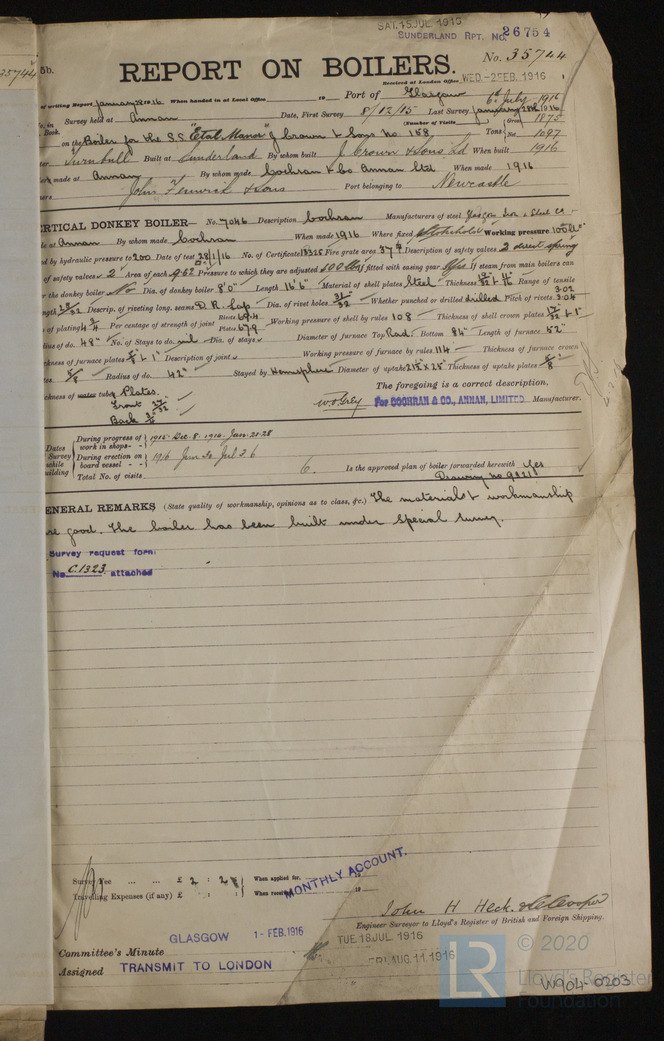 SAT. 15 JUL 1916
SUNDERLAND RPT. NO. 26754
5b.
35744
No. 35744
REPORT ON BOILERS.
Received at London Office WED. -2 FEB. 1916
of writing Report January 28 1916 When handed in at Local Office 19 Port of Glasgow 6th July 1916
Survey held at Annan Date, First Survey 8/12/15 Last Survey January 28th 1916
Book. (Number of Visits Gross 1875
on the Boiler for the S.S. "Etal Manor" J Crown & Sons No 158 Tons Net 1097
Turnbull Built at Sunderland By whom built J Crown & Sons Ld When built 1916
made at Annan By whom made Cochran & Co Annan Ltd When made 1916
John Fenwick & Sons Port belonging to Newcastle
VERTICAL DONKEY BOILER— No. 7046 Description Cochran Manufacturers of steel Glasgow Iron & Steel Co
at Annan By whom made Cochran When made 1916 Where fixed Stokehold Working pressure 100 lbs
by hydraulic pressure to 200 Date of test 28/1/16 No. of Certificate 13325 Fire grate area 37 Description of safety valves 2 direct spring
of safety valves 2 Area of each 9.62 Pressure to which they are adjusted 100 lbs If fitted with easing gear Yes If steam from main boilers can
the donkey boiler No Dia. of donkey boiler 8'0" Length 16'6" Material of shell plates Steel Thickness Range of tensile
Descrip. of riveting long. seams D.R. Lap Dia. of rivet holes Whether punched or drilled drilled Pitch of rivets 3.02 3.04
of plating Per centage of strength of joint Rivets 69.4 Plates 67.9 Working pressure of shell by rules 108 Thickness of shell crown plates
us of do. 48" No. of Stays to do. nil Dia. of stays Diameter of furnace Top Rad. Bottom 84" Length of furnace 52"
ckness of furnace plates Description of joint Working pressure of furnace by rules 114 Thickness of furnace crown
tes. 5/8 Radius of do. 42" Stayed by Hemisphere Diameter of uptake 21 5/8 x 25 Thickness of uptake plates 5/8
ckness of water tube Plates.
Front
Back
The foregoing is a correct description,
For COCHRAN & CO., ANNAN, LIMITED. Manufacturer.
Dates Survey while building
During progress of work in shops - - 1915 Dec. 8. 1916. Jan. 21. 28
During erection on board vessel - - 1916 Jun 20 Jul 2 6
Total No. of visits 6. Is the approved plan of boiler forwarded herewith Yes
Drawing no 9221
GENERAL REMARKS (State quality of workmanship, opinions as to class, &c.) The materials & workmanship
are good. The boiler has been built under special survey.
Survey request form
No. C.1323 attached
Survey Fee ... ... £ 2 : 2 When applied for,
Travelling Expenses (if any) £ : : When received, 19
MONTHLY ACCOUNT.
John H Heck.
Engineer Surveyor to Lloyd's Register of British and Foreign Shipping.
GLASGOW 1 - FEB. 1916
TUE 18 JUL. 1916
Committee's Minute
FRI. AUG 11. 1916
Assigned TRANSMIT TO LONDON
LR
© 2020
Lloyd's Register
Foundation
W904-0203